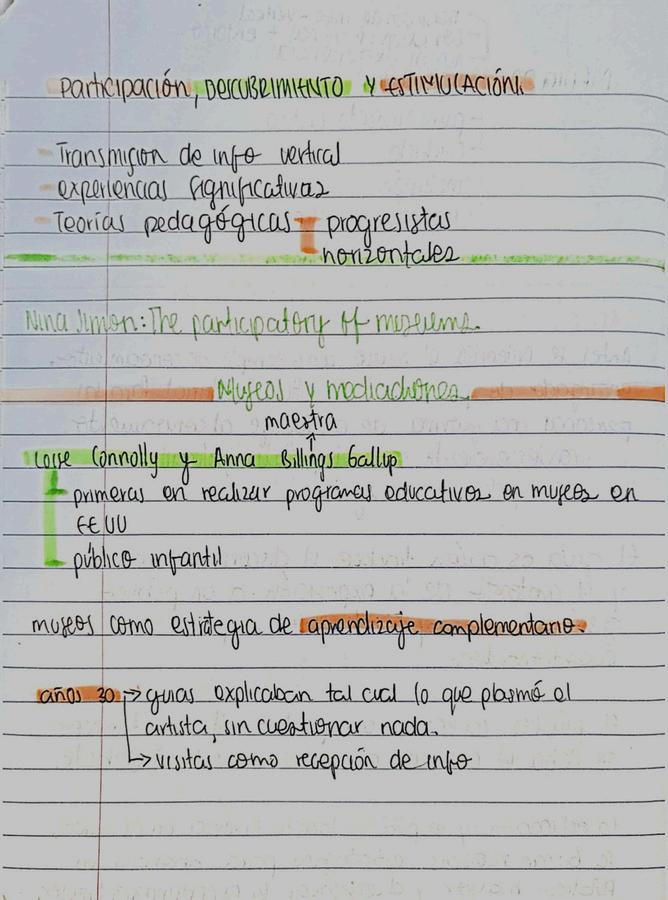 Participación, DESCUBRIMIENTO Y ESTIMULACIÓN.
- Transmisión de info vertical
- experiencias significativas
- Teorías pedagógicas progresistas
horizontales
Nina Simon: The participatory of museums.
Museos y mediaciones
maestra
↑
Connolly y Anna Billings Gallup
primeras en realizar programas educativos en museos en
EEUU
público infantil
museos como estrategia de aprendizaje complementario.
años 30 → guias explicaban tal cual lo que plasmó el
artista, sin cuestionar nada.
→ visitas como recepción de info